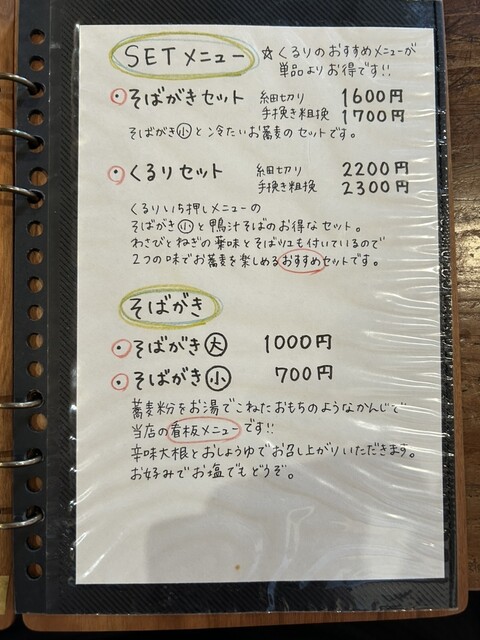 SETメニュー ☆くるりのおすすめメニューが
単品よりお得です!!
・そばがきセット 細切り 1600円
手挽き粗挽 1700円
そばがき小と冷たいお蕎麦のセットです。
・くるりセット 細切り 2200円
手挽き粗挽 2300円
くるりいち押しメニューの
そばがき小と鴨汁そばのお得なセット。
わさびとねぎの薬味とそばツユも付いているので
2つの味でお蕎麦を楽しめるおすすめセットです。
そばがき
・そばがき大 1000円
・そばがき小 700円
蕎麦粉をお湯でこねたおもちのようなかんじで
当店の看板メニューです!!
辛味大根とおしょうゆでお召し上がりいただきます。
お好みでお塩でもどうぞ。